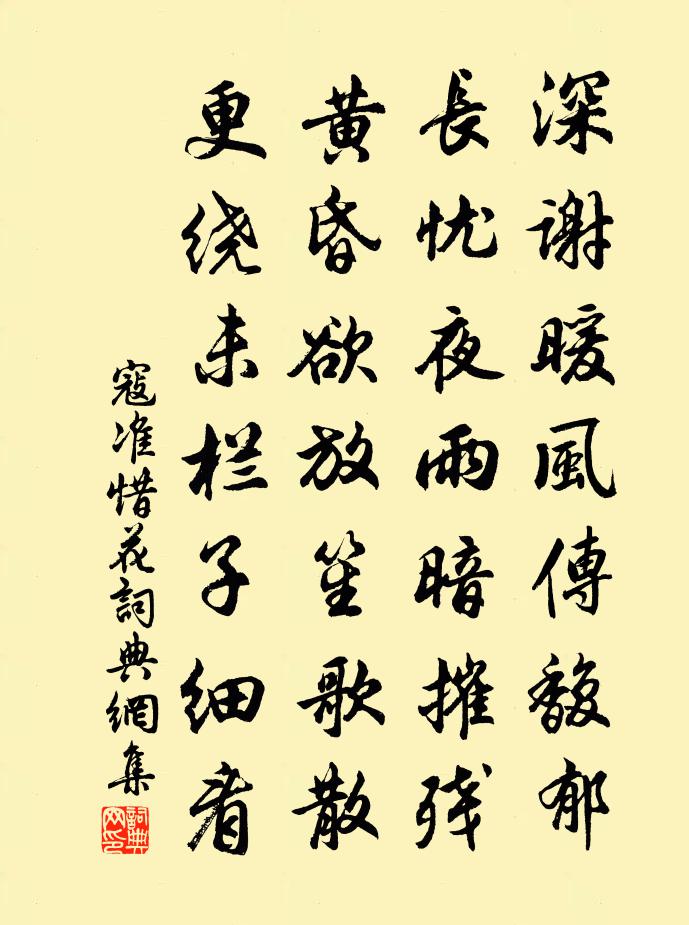 深谢暖風傳馥郁
長忧夜雨暗摧残
黄昏欲放笙歌散
更绕朱栏子细看
寇准惜花詞典網集
詞典网印